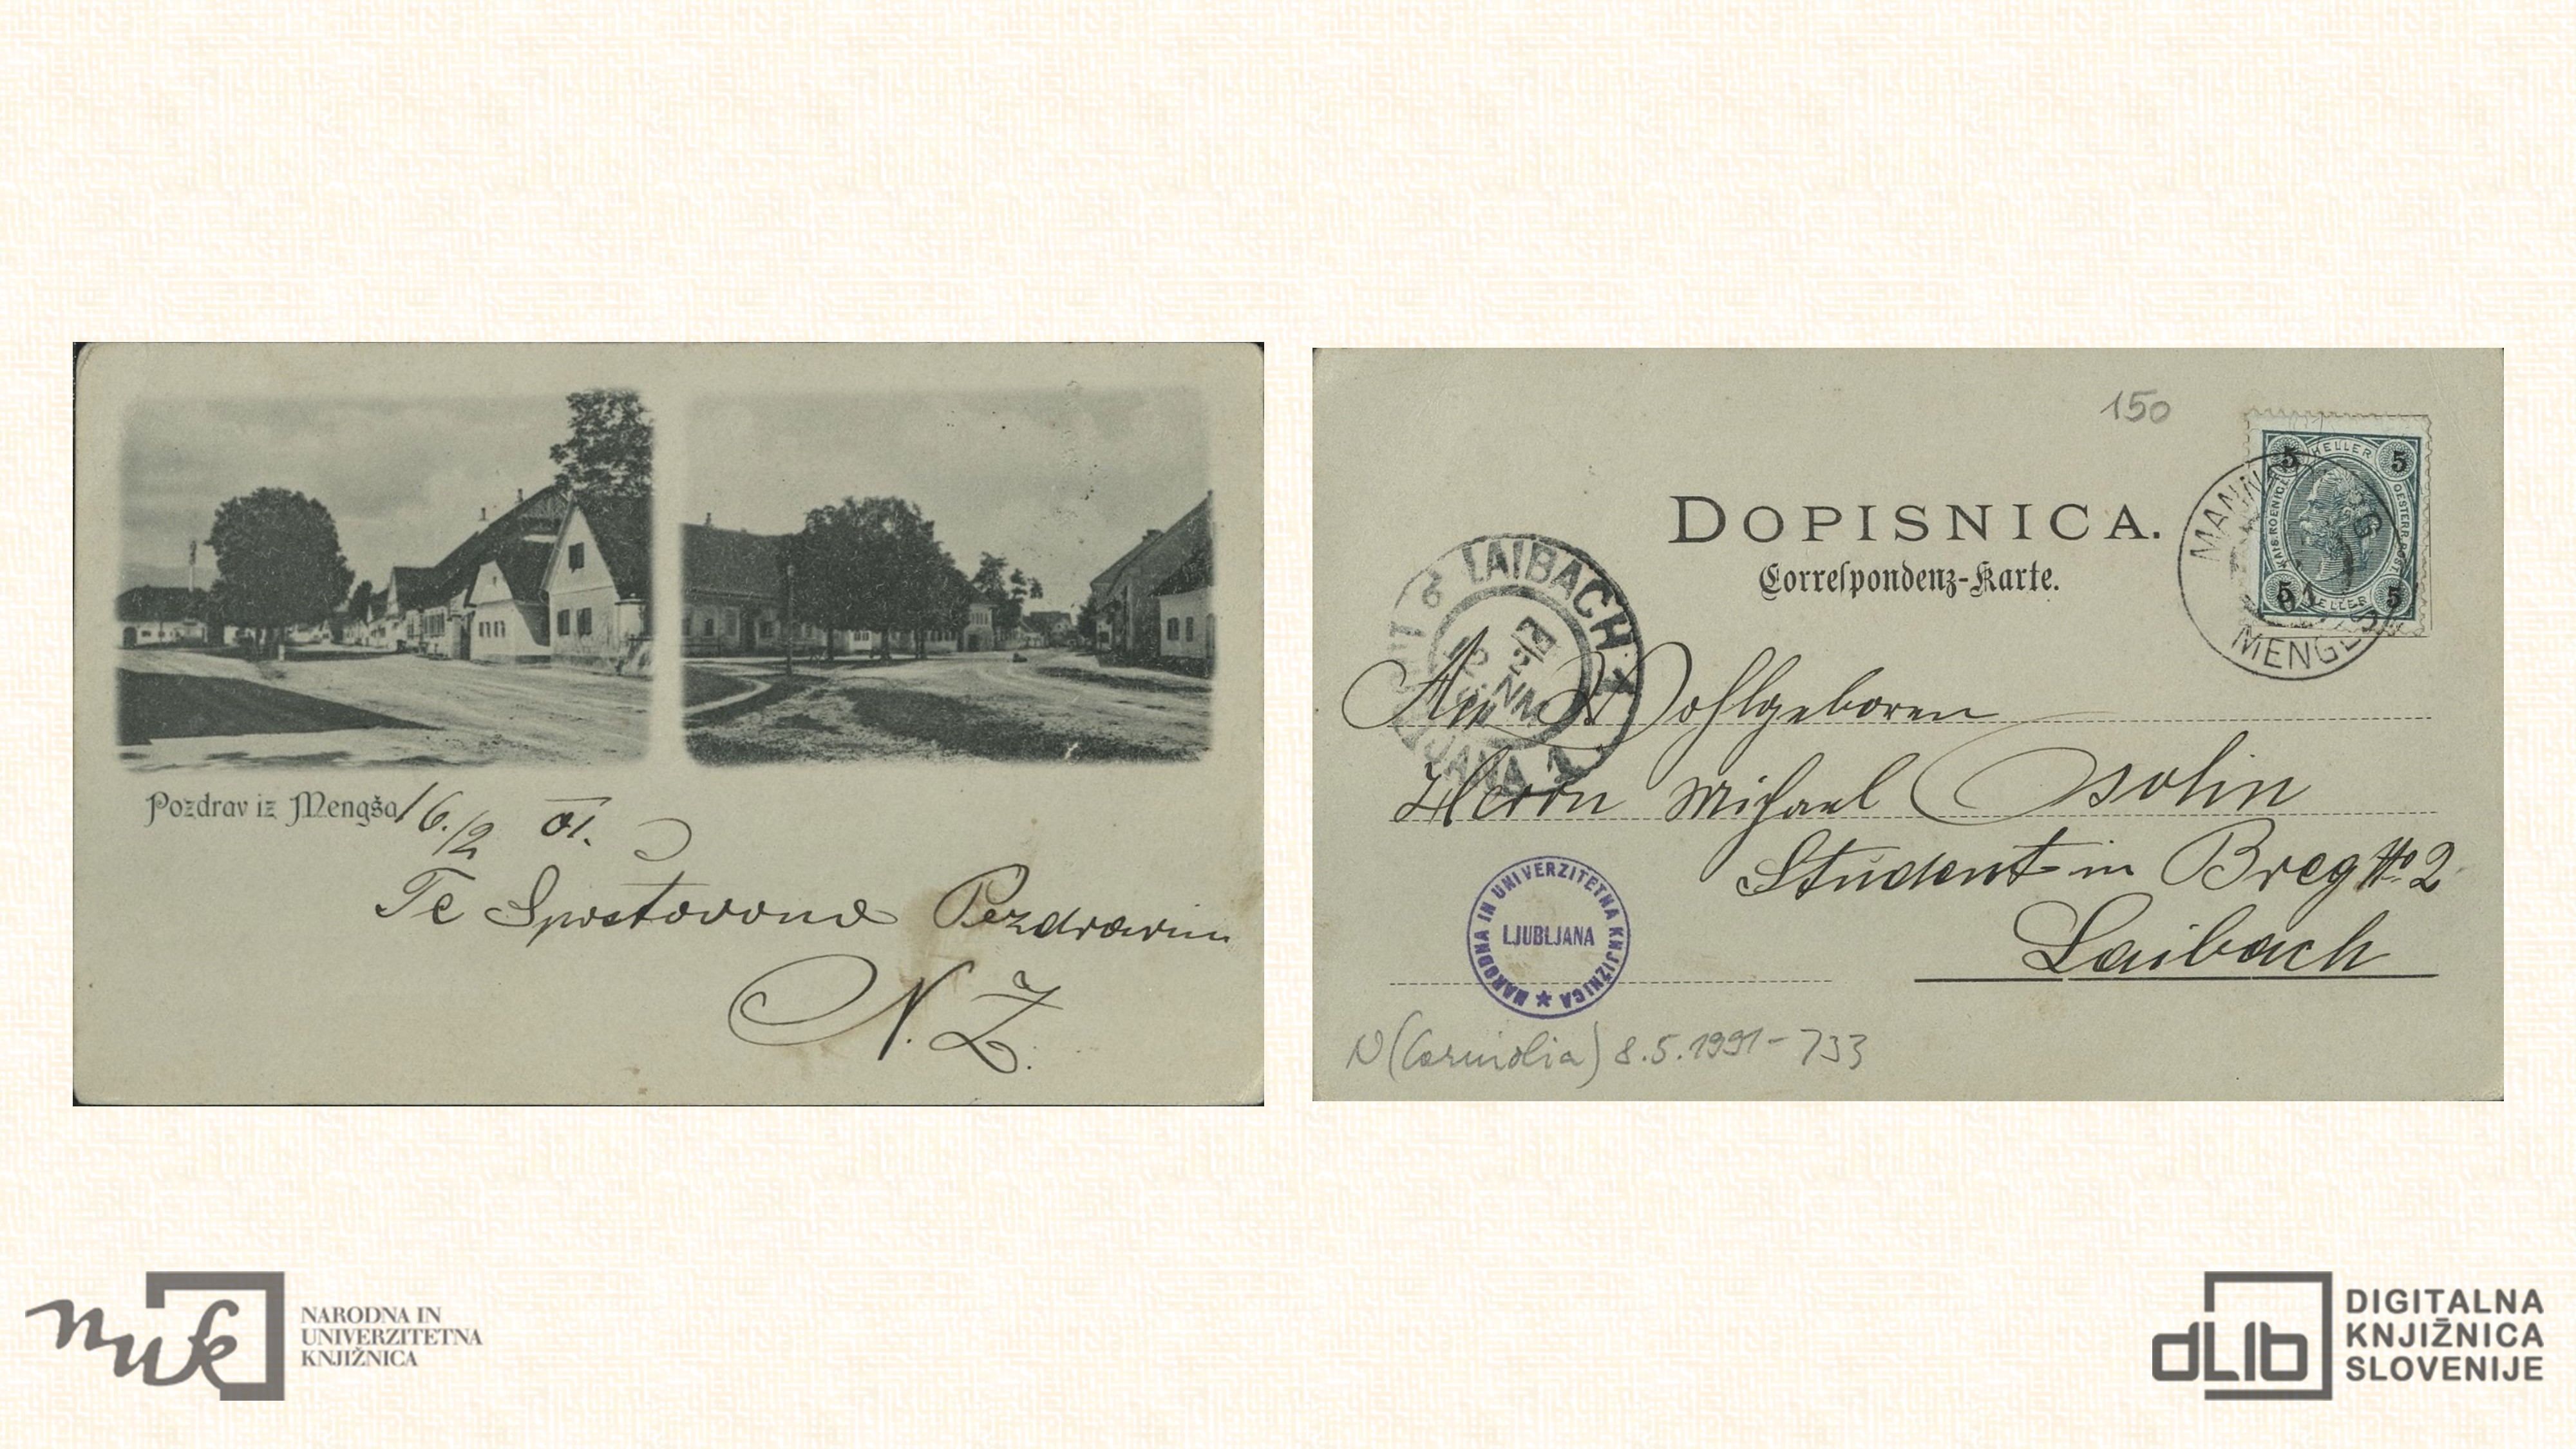 Pozdrav iz Mengša
16./2 01.
Te Spostovono Pozdravim
N. Ž.
150
5 HELLER 5
5 HELLER 5
MENGEŠ
01
DOPISNICA.
Correspondenz-Karte.
LAIBACH
An Wohlgeboren
Herrn Michael Osolin
Student in Breg No 2
Laibach
NARODNA IN UNIVERZITETNA KNJIŽNICA
LJUBLJANA
N (Carniolia) 8.5.1991-733
nuk
NARODNA IN
UNIVERZITETNA
KNJIŽNICA
dLib
DIGITALNA
KNJIŽNICA
SLOVENIJE